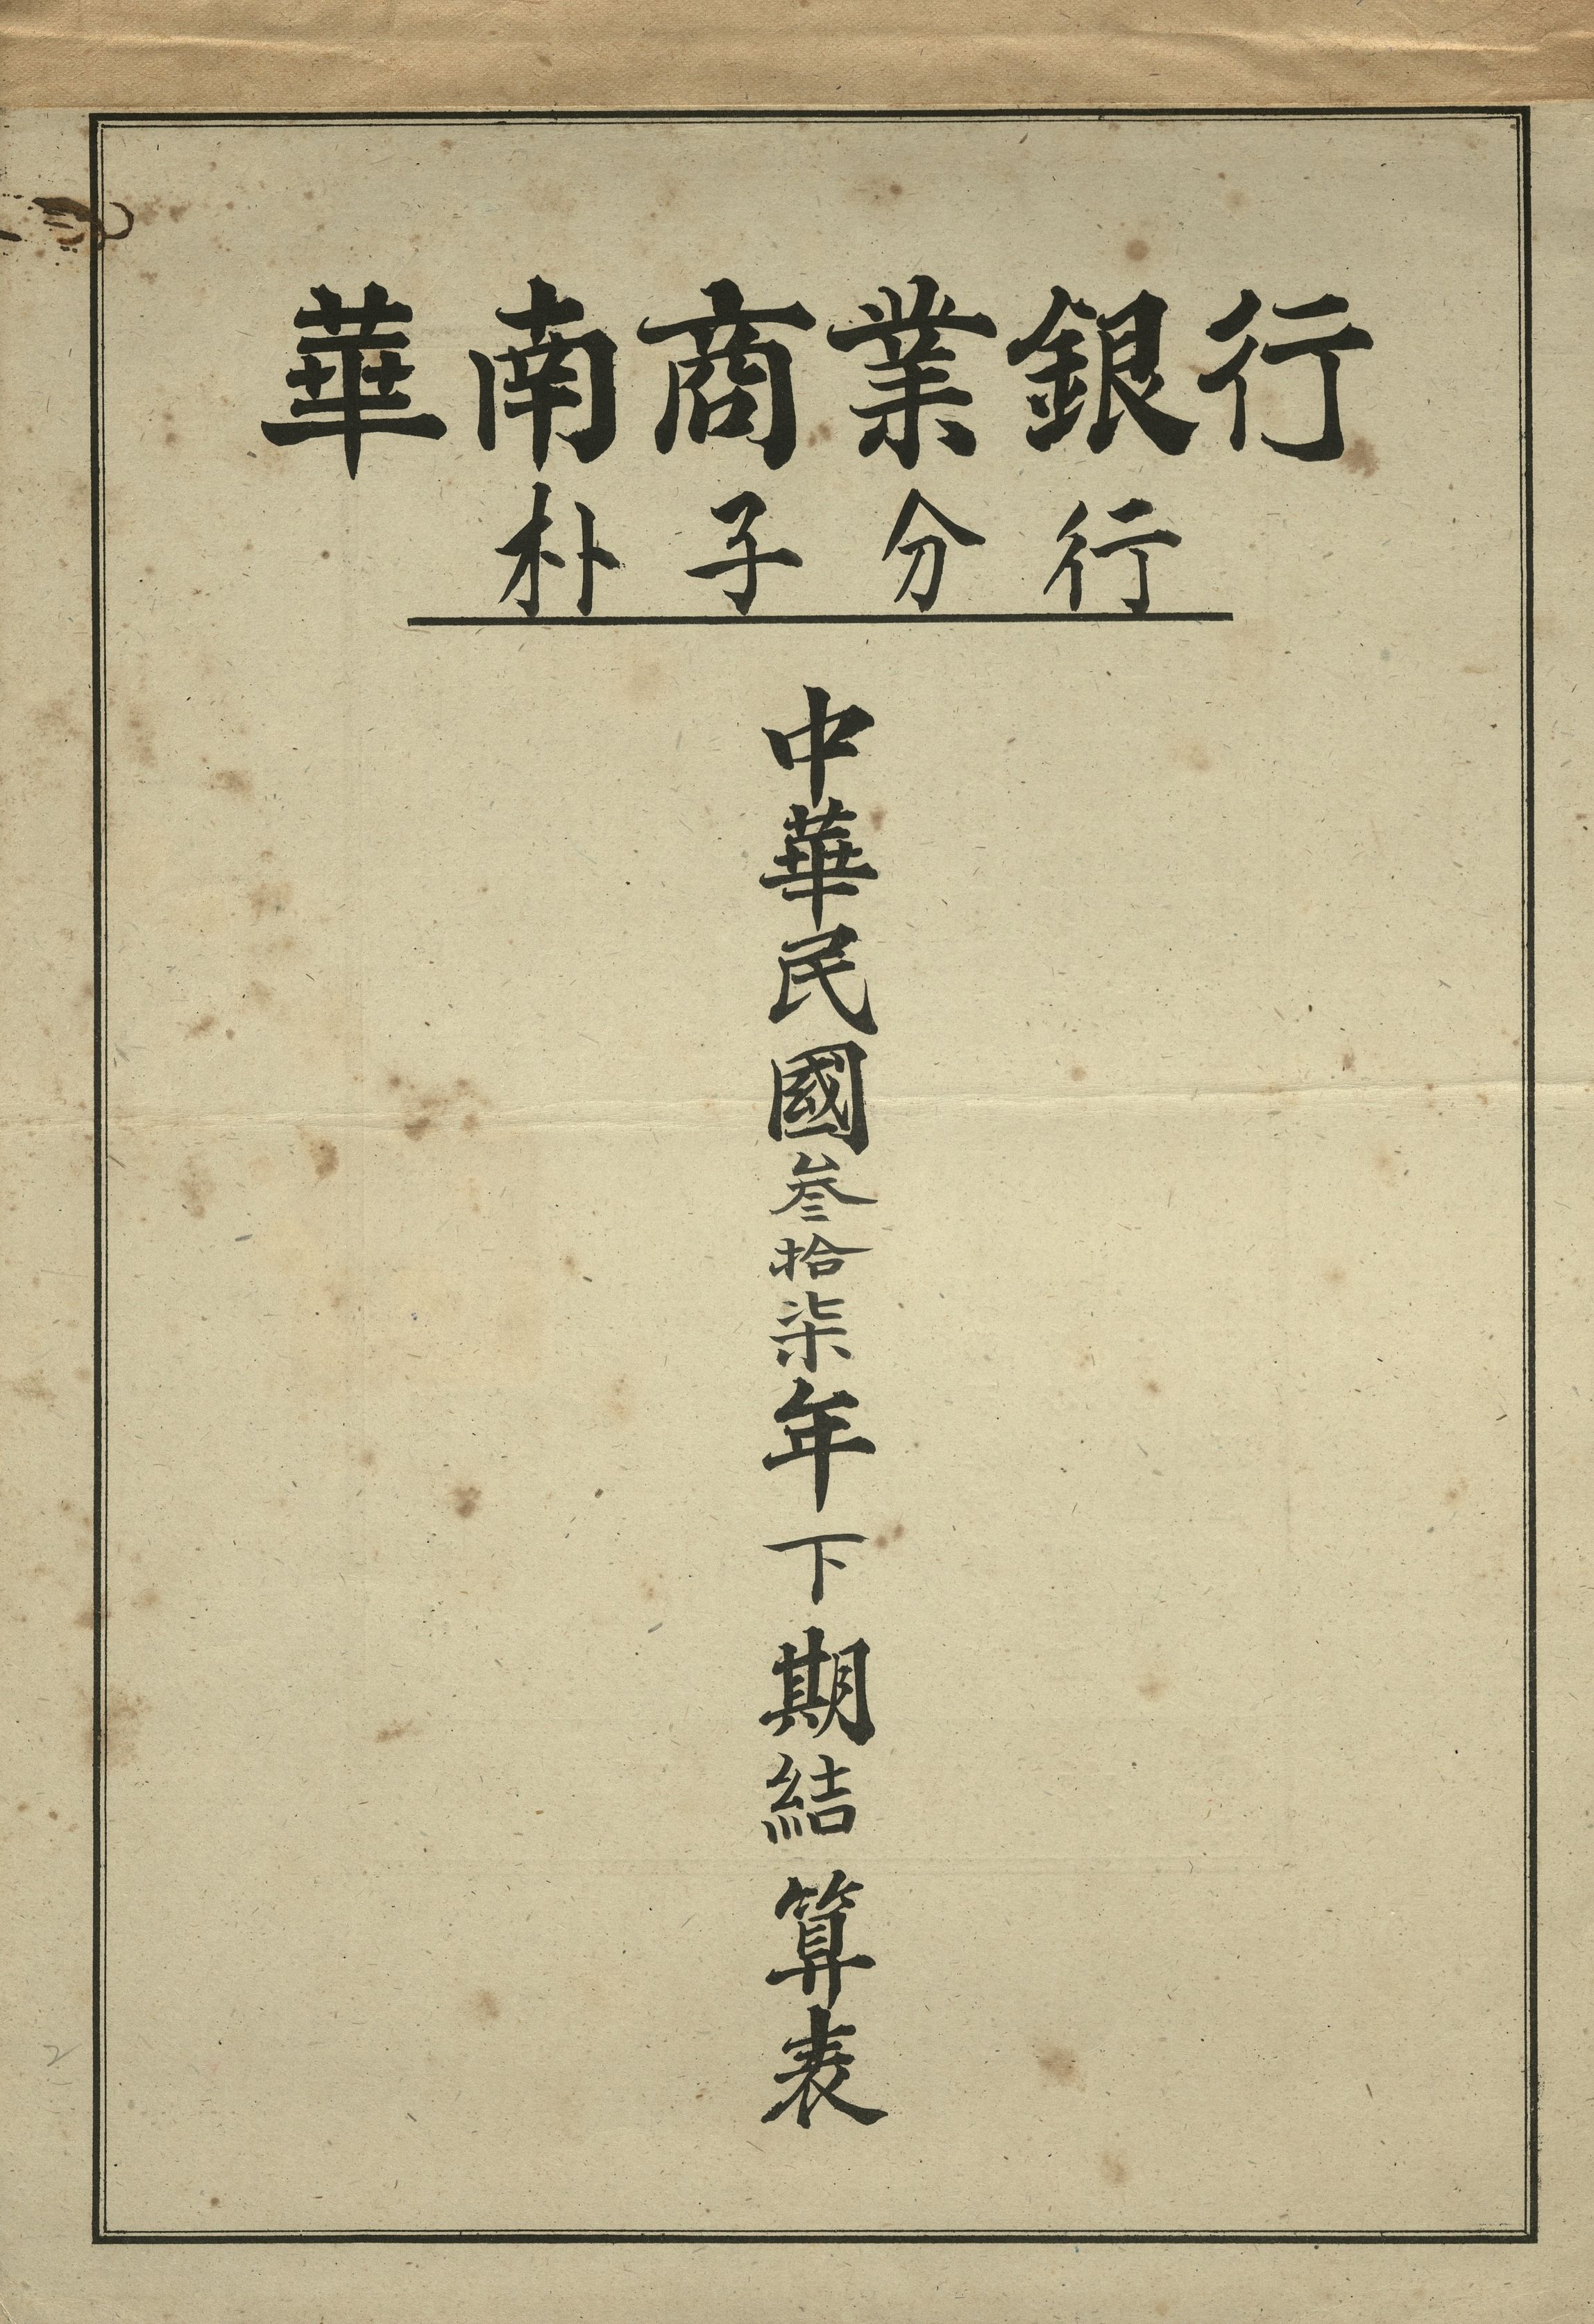 華南商業銀行
朴子分行
中華民國叁拾柒年下期結算表
2